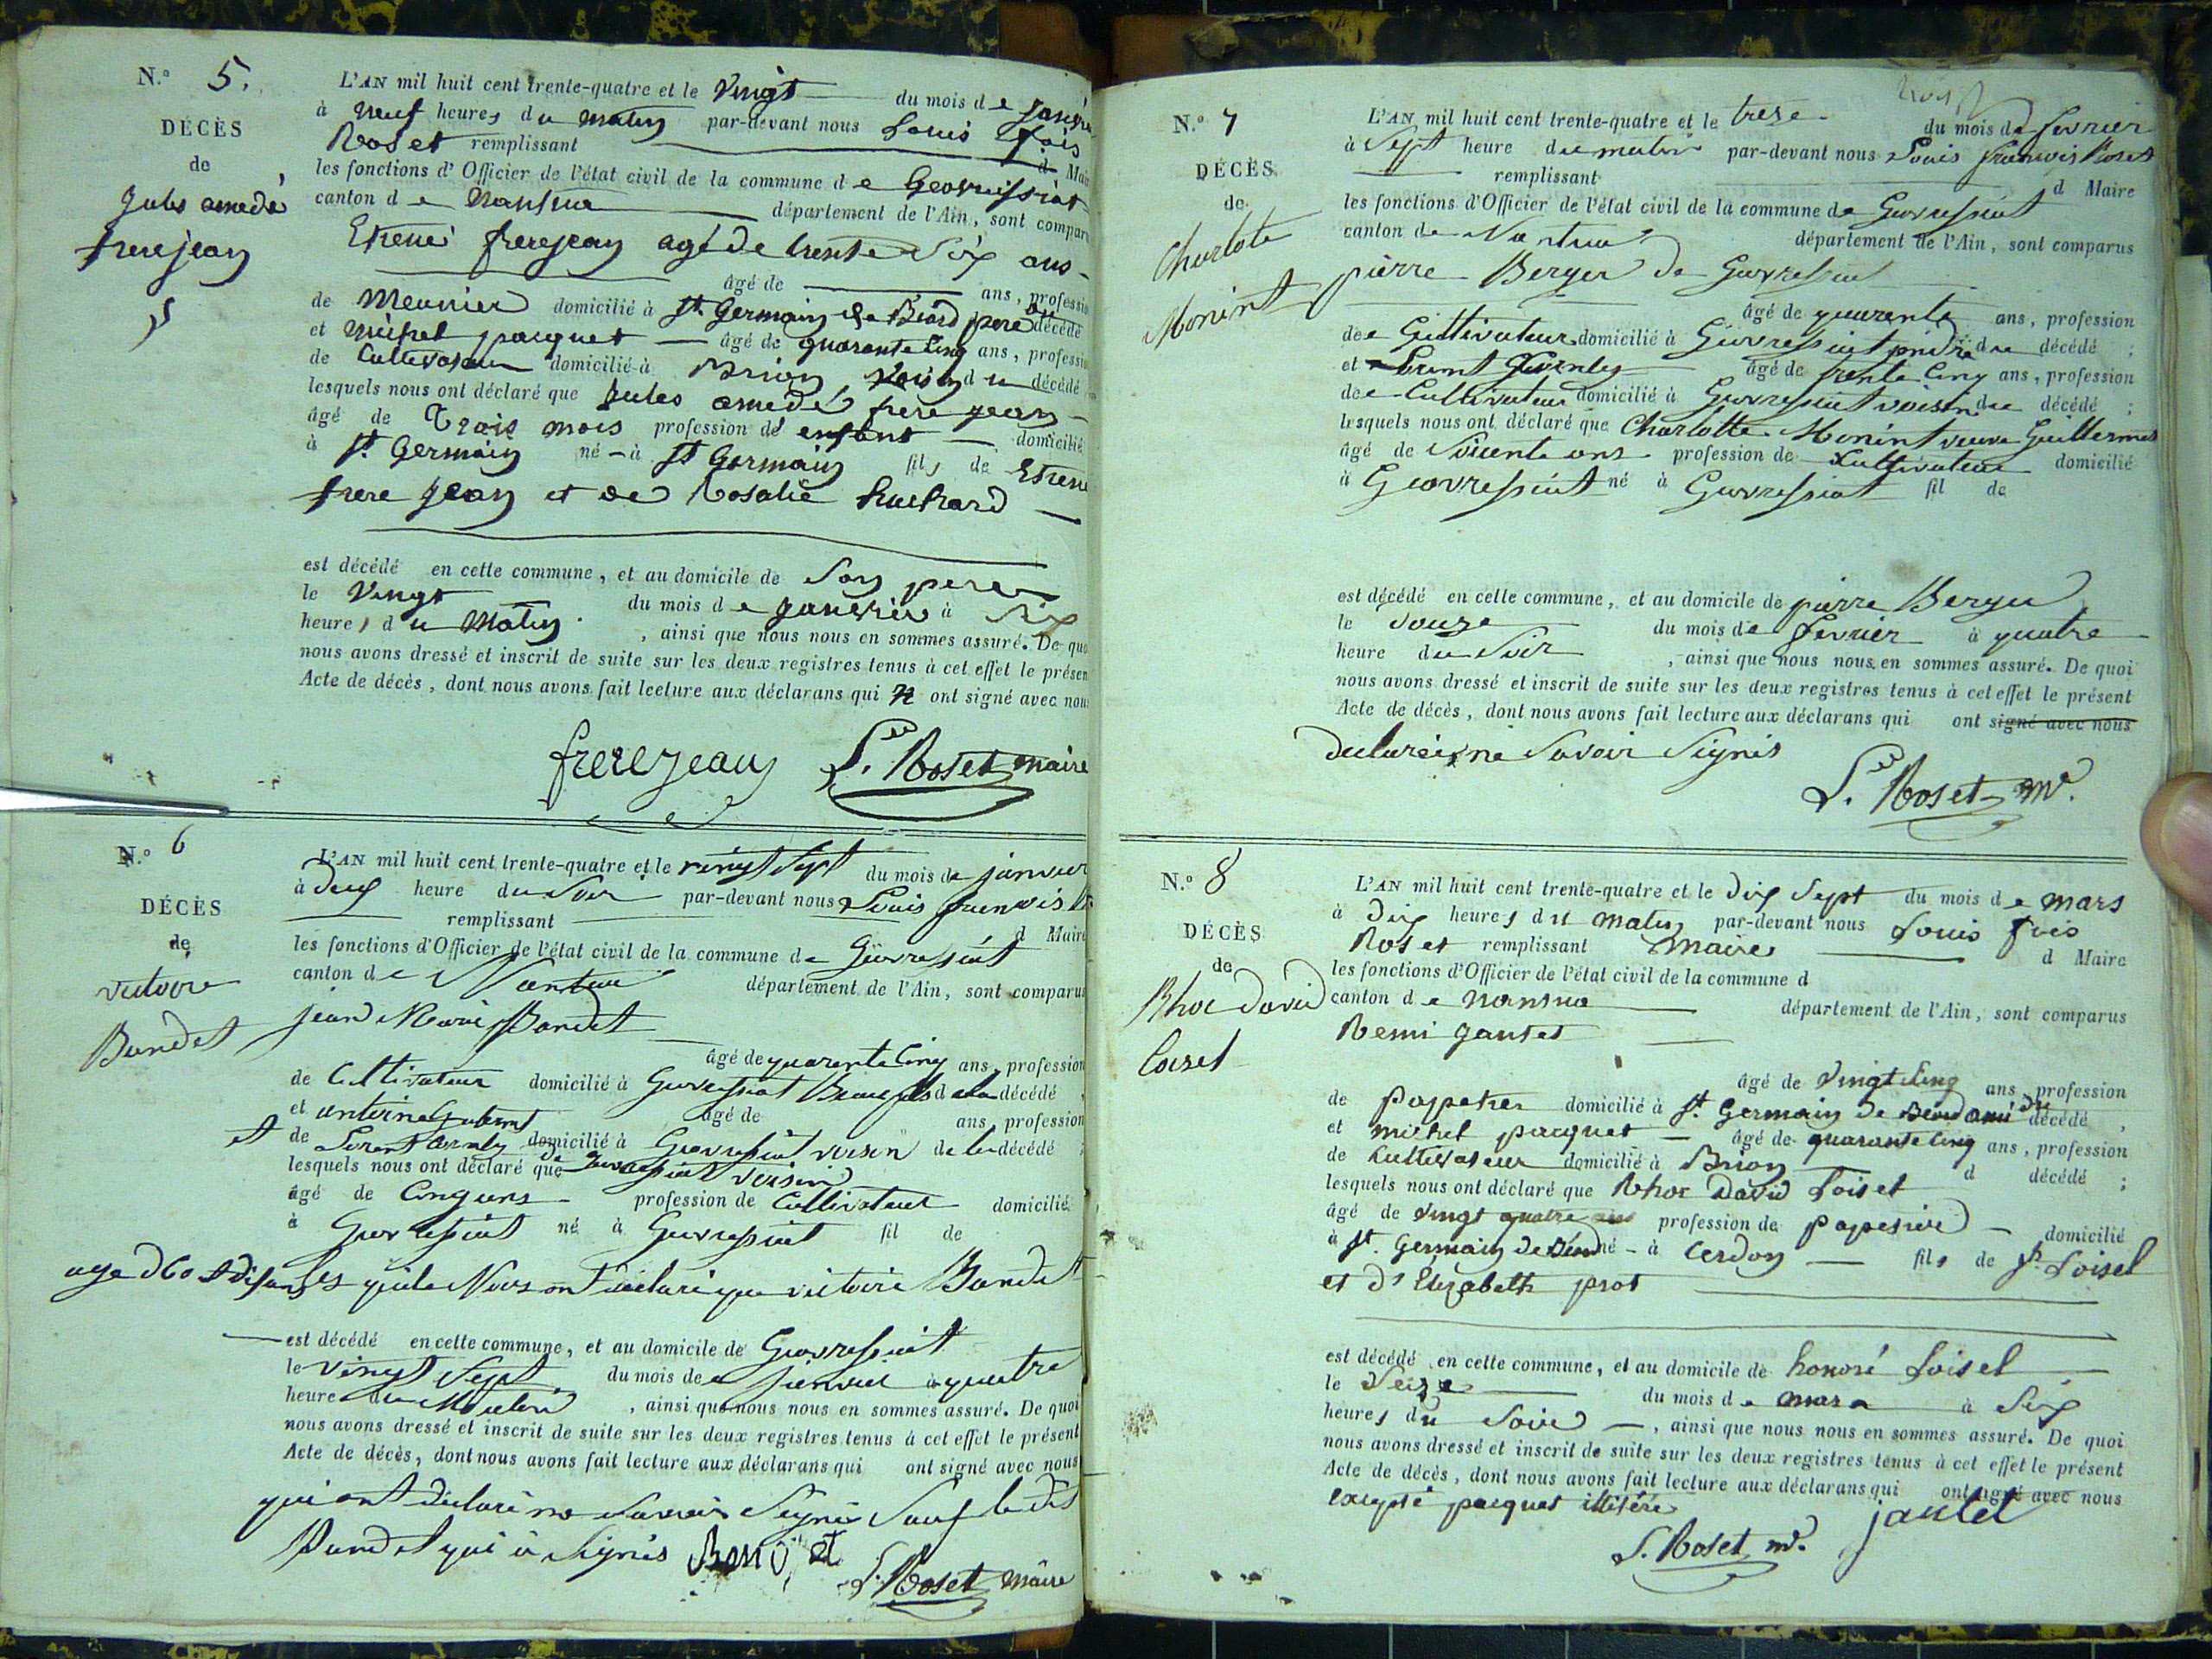 N.° 5.
DÉCÈS
de
Jules amedé
frerejean
L'AN mil huit cent trente-quatre et le Vingt du mois de Janvie
à neuf heures du matin par-devant nous Louis fois
Roset remplissant d Mai
les fonctions d'Officier de l'état civil de la commune de Geovreissiat
canton de Nantua département de l'Ain, sont compar
Etienne frerejean agé de trente Six ans
âgé de ans, professio
de Meunier domicilié à St Germain de Béard pere du décédé
et michel pacquet âgé de quarante Cinq ans, professi
de Cultivateur domicilié à Brion voisin du décédé
lesquels nous ont déclaré que Jules amedé frere jean
âgé de Trois mois profession de enfant domicilié
à St Germain né à St Germain fils de Etiene
frere jean et de Rosalie
est décédé en cette commune, et au domicile de Son pere
le Vingt du mois de janvier à Six
heures du Matin, ainsi que nous nous en sommes assuré. De quo
nous avons dressé et inscrit de suite sur les deux registres tenus à cet effet le présen
Acte de décès, dont nous avons fait lecture aux déclarans qui n ont signé avec nou
frerejean L. Roset maire
N.° 6
DÉCÈS
de
victoire
Bandet
L'AN mil huit cent trente-quatre et le vingt Sept du mois de janvier
à deux heure du Soir par-devant nous Louis francois
remplissant d Maire
les fonctions d'Officier de l'état civil de la commune de Geovressiat
canton de Nantua département de l'Ain, sont comparu
jean Marie Bandet
âgé de quarente Cinq ans, profession
de Cultivateur domicilié à Geovressiat Beaufils de la décédé
et antoine âgé de ans, profession
et de Lorent domicilié à Geovressiat voisin de la décédé
lesquels nous ont déclaré que de Geovressiat voisin
âgé de Cinq ans profession de Cultivateur domicilié
à Geovressiat né à Geovressiat fil de
age d 60 et dis ans les quele Nous on declaré que victoire Bandet
est décédé en cette commune, et au domicile de Geovressiat
le vingt Sept du mois de janvier à quatre
heure du Matin, ainsi que nous nous en sommes assuré. De quoi
nous avons dressé et inscrit de suite sur les deux registres tenus à cet effet le présent
Acte de décès, dont nous avons fait lecture aux déclarans qui ont signé avec nous
qui ont déclaré ne Savoir Signer Sauf le dit
Bandet qui à Signés Bandet
L. Roset maire
N.° 7
DÉCÈS
de
Charlote
Monint
L'AN mil huit cent trente-quatre et le treze du mois de fevrier
à Sept heure du matin par-devant nous Louis francois Roset
remplissant d Maire
les fonctions d'Officier de l'état civil de la commune de Geovressiat
canton de Nantua département de l'Ain, sont comparus
pierre Berger de Geovressiat
âgé de quarente ans, profession
de Cultivateur domicilié à Geovressiat du décédé ;
et Lorent âgé de trente Cinq ans, profession
de Cultivateur domicilié à Geovressiat voisin du décédé ;
lesquels nous ont déclaré que Charlotte Monint veuve Guillermet
âgé de Soicente ans profession de Cultivateur domicilié
à Geovressiat né à Geovressiat fil de
est décédé en cette commune, et au domicile de pierre Berger
le Douze du mois de fevrier à quatre
heure du Soir, ainsi que nous nous en sommes assuré. De quoi
nous avons dressé et inscrit de suite sur les deux registres tenus à cet effet le présent
Acte de décès, dont nous avons fait lecture aux déclarans qui ont signé avec nous
declaré ne Savoir Signés
L. Roset m.
N.° 8
DÉCÈS
de
Rhoc David
Loisel
L'AN mil huit cent trente-quatre et le dix Sept du mois de mars
à Dix heures du matin par-devant nous Louis fois
Roset remplissant Maire d Maire
les fonctions d'Officier de l'état civil de la commune d
canton de Nantua département de l'Ain, sont comparus
Remi Jantet
âgé de Vingt Cinq ans, profession
de Papetier domicilié à St Germain de Béard ami du décédé ,
et michel pacquet âgé de quarante Cinq ans, profession
de Cultivateur domicilié à Brion d décédé ;
lesquels nous ont déclaré que Rhoc David Loisel
âgé de Vingt quatre ans profession de papetier domicilié
à St. Germain de Béard né à Cerdon fils de Loisel
et d'Elizabeth prot
est décédé en cette commune, et au domicile de honoré Loisel
le Seize du mois de mars à Six
heures du Soir, ainsi que nous nous en sommes assuré. De quoi
nous avons dressé et inscrit de suite sur les deux registres tenus à cet effet le présent
Acte de décès, dont nous avons fait lecture aux déclarans qui ont signé avec nous
excepté pacquet illitéré
L. Roset m. jantet